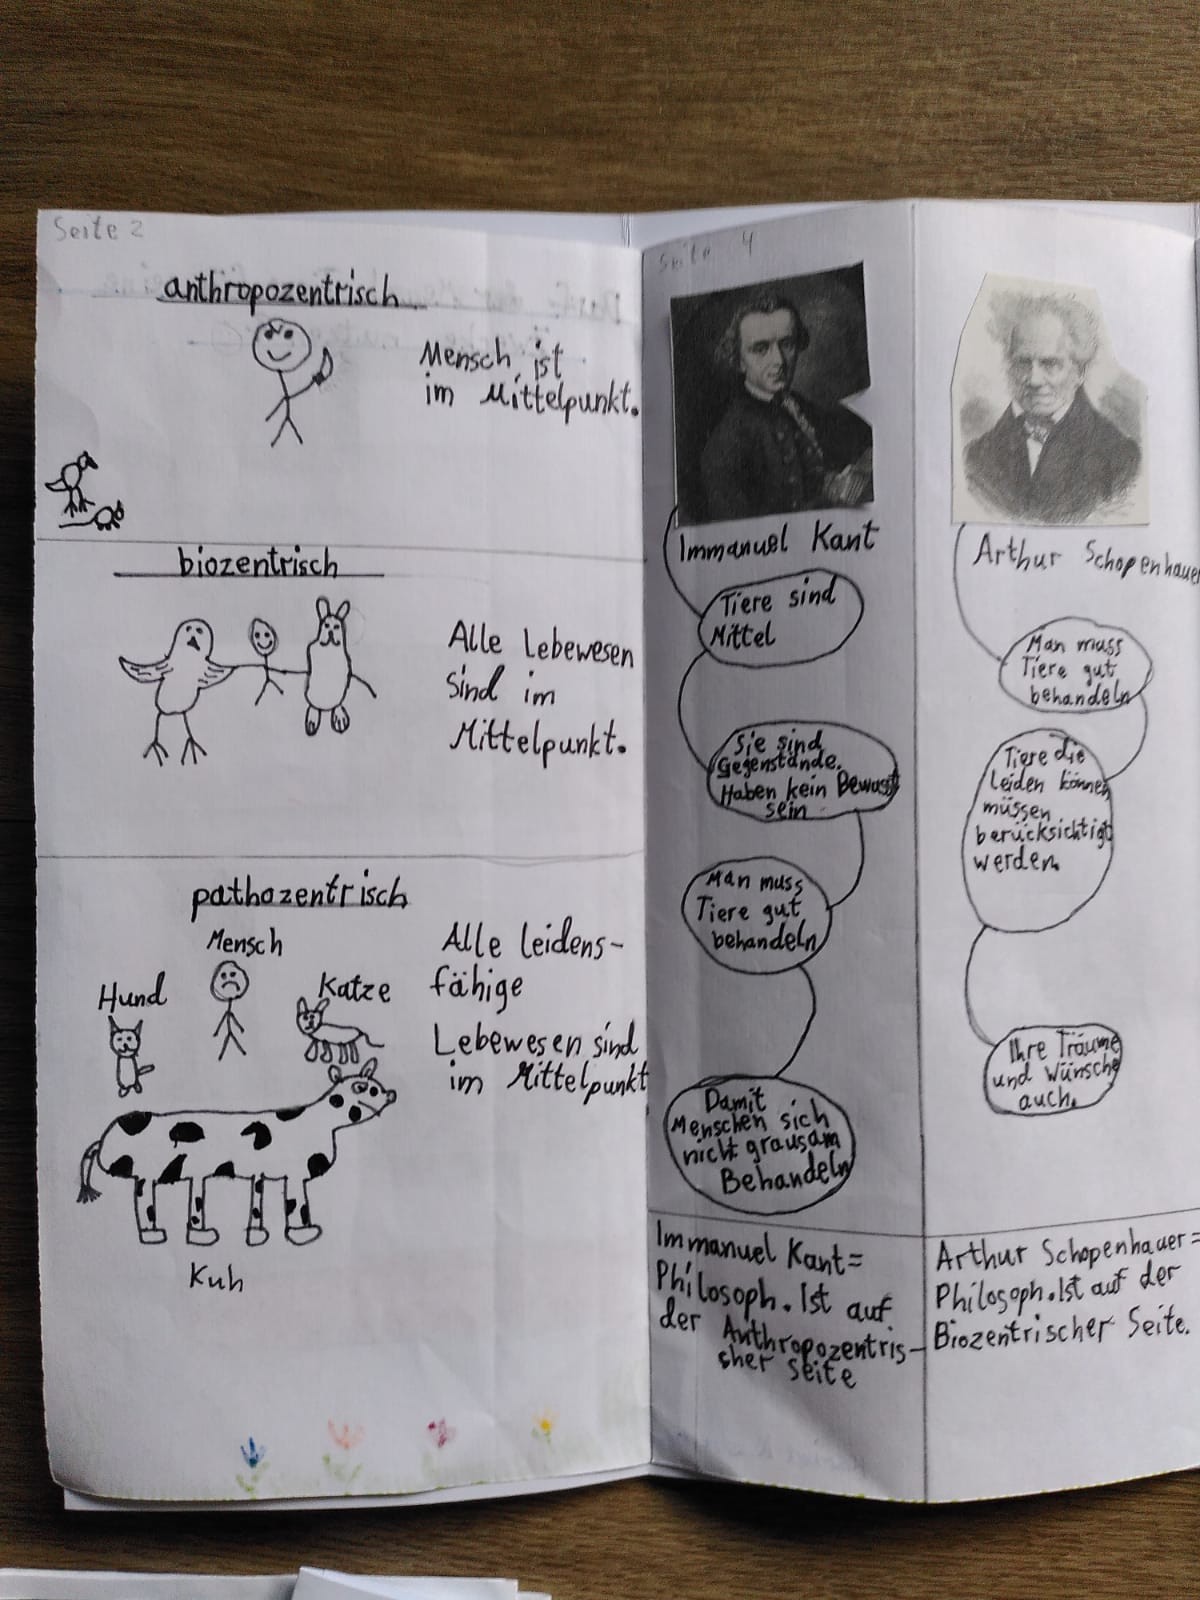 Seite 2
anthropozentrisch
Mensch ist
im Mittelpunkt.
biozentrisch
Alle Lebewesen
sind im
Mittelpunkt.
pathozentrisch
Mensch
Hund
Katze
Alle leidens-
fähige
Lebewesen sind
im Mittelpunkt
Kuh
Seite 4
Immanuel Kant
Tiere sind
Mittel
Sie sind
Gegenstände.
Haben kein Bewusst
sein
Man muss
Tiere gut
behandeln
Damit
Menschen sich
nicht grausam
Behandeln
Immanuel Kant=
Philosoph. Ist auf
der Anthropozentris-
cher Seite
Arthur Schopenhauer
Man muss
Tiere gut
behandeln
Tiere die
Leiden können
müssen
berücksichtigt
werden.
Ihre Träume
und Wünsche
auch.
Arthur Schopenhauer=
Philosoph. Ist auf der
Biozentrischer Seite.